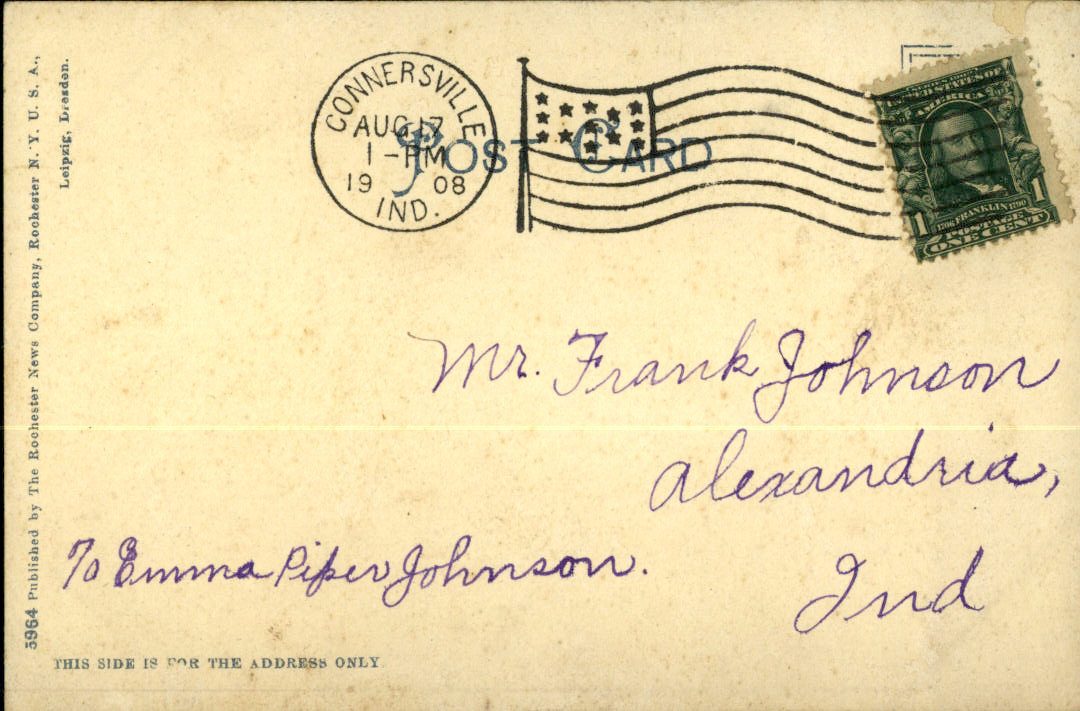 CONNERSVILLE
AUG 17
1-PM
19 08
IND.
POST CARD
UNITED STATES OF
AMERICA
1 1706 FRANKLIN 1790 1
POSTAGE
ONE CENT
Mr. Frank Johnson
Alexandria,
Ind
To Emma Piper Johnson.
THIS SIDE IS FOR THE ADDRESS ONLY
5964 Published by The Rochester News Company, Rochester N. Y. U. S. A.,
Leipzig, Dresden.